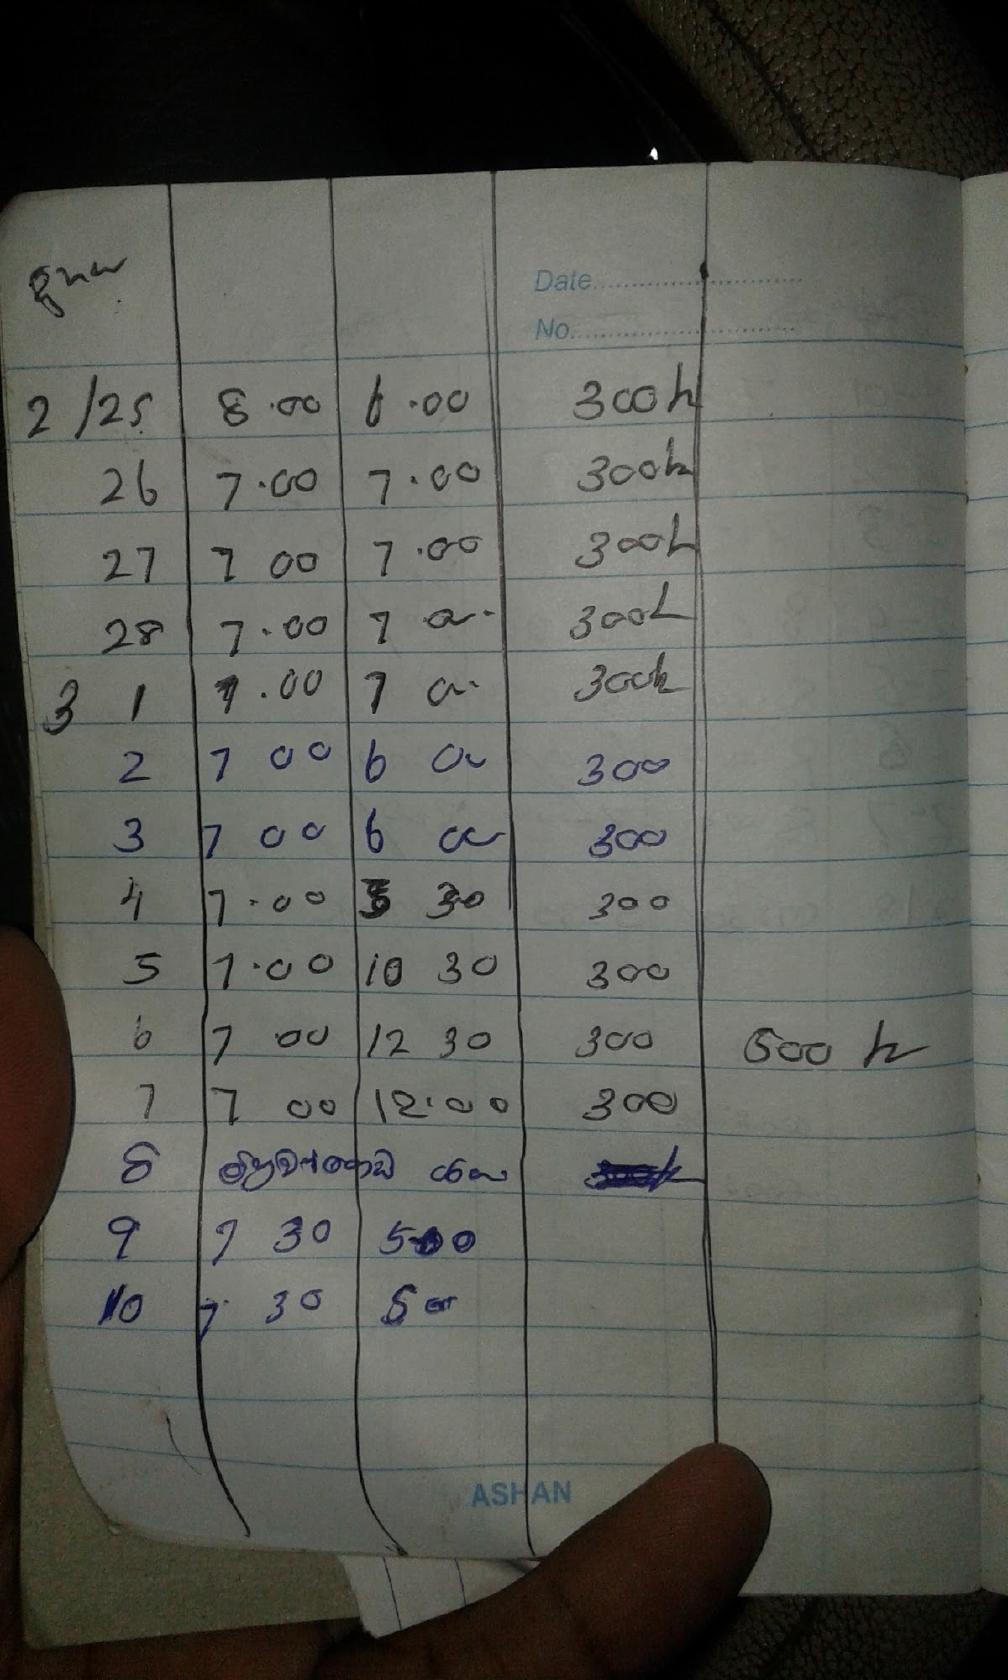 Date
No.
2/25 8.00 6.00 300h
26 7.00 7.00 300h
27 7 00 7.00 300h
28 7.00 7 00 300h
3 1 7.00 7 00 300h
2 7 00 6 00 300
3 7 00 6 00 300
4 7.00 5 30 300
5 7.00 10 30 300
6 7 00 12 30 300 500 h
7 7 00 12.00 300
8
9 7 30 5 00
10 7 30 5 00
ASHAN